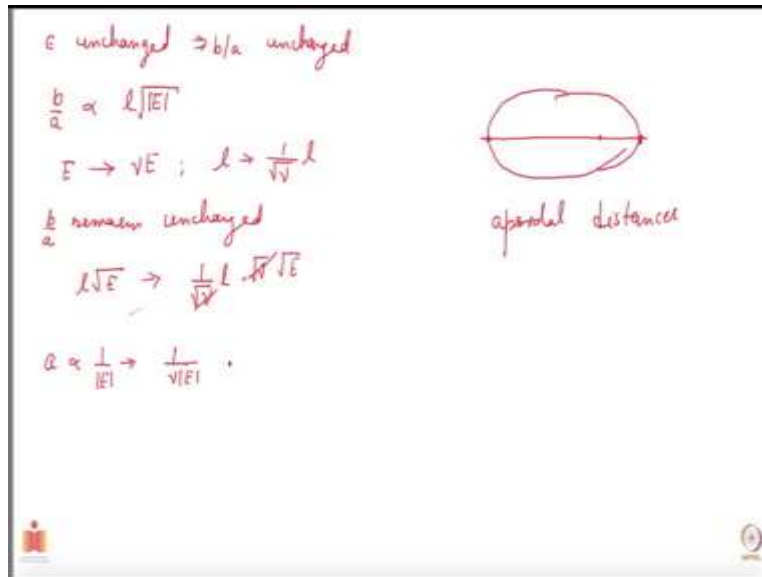 ε unchanged ⇒ b/a unchanged
b/a ∝ l√|E|
E → νE ; l → 1/√ν l
b/a remains unchanged
l√E → 1/√ν l · √ν √E
a ∝ 1/|E| → 1/ν|E| .
apsidal distances